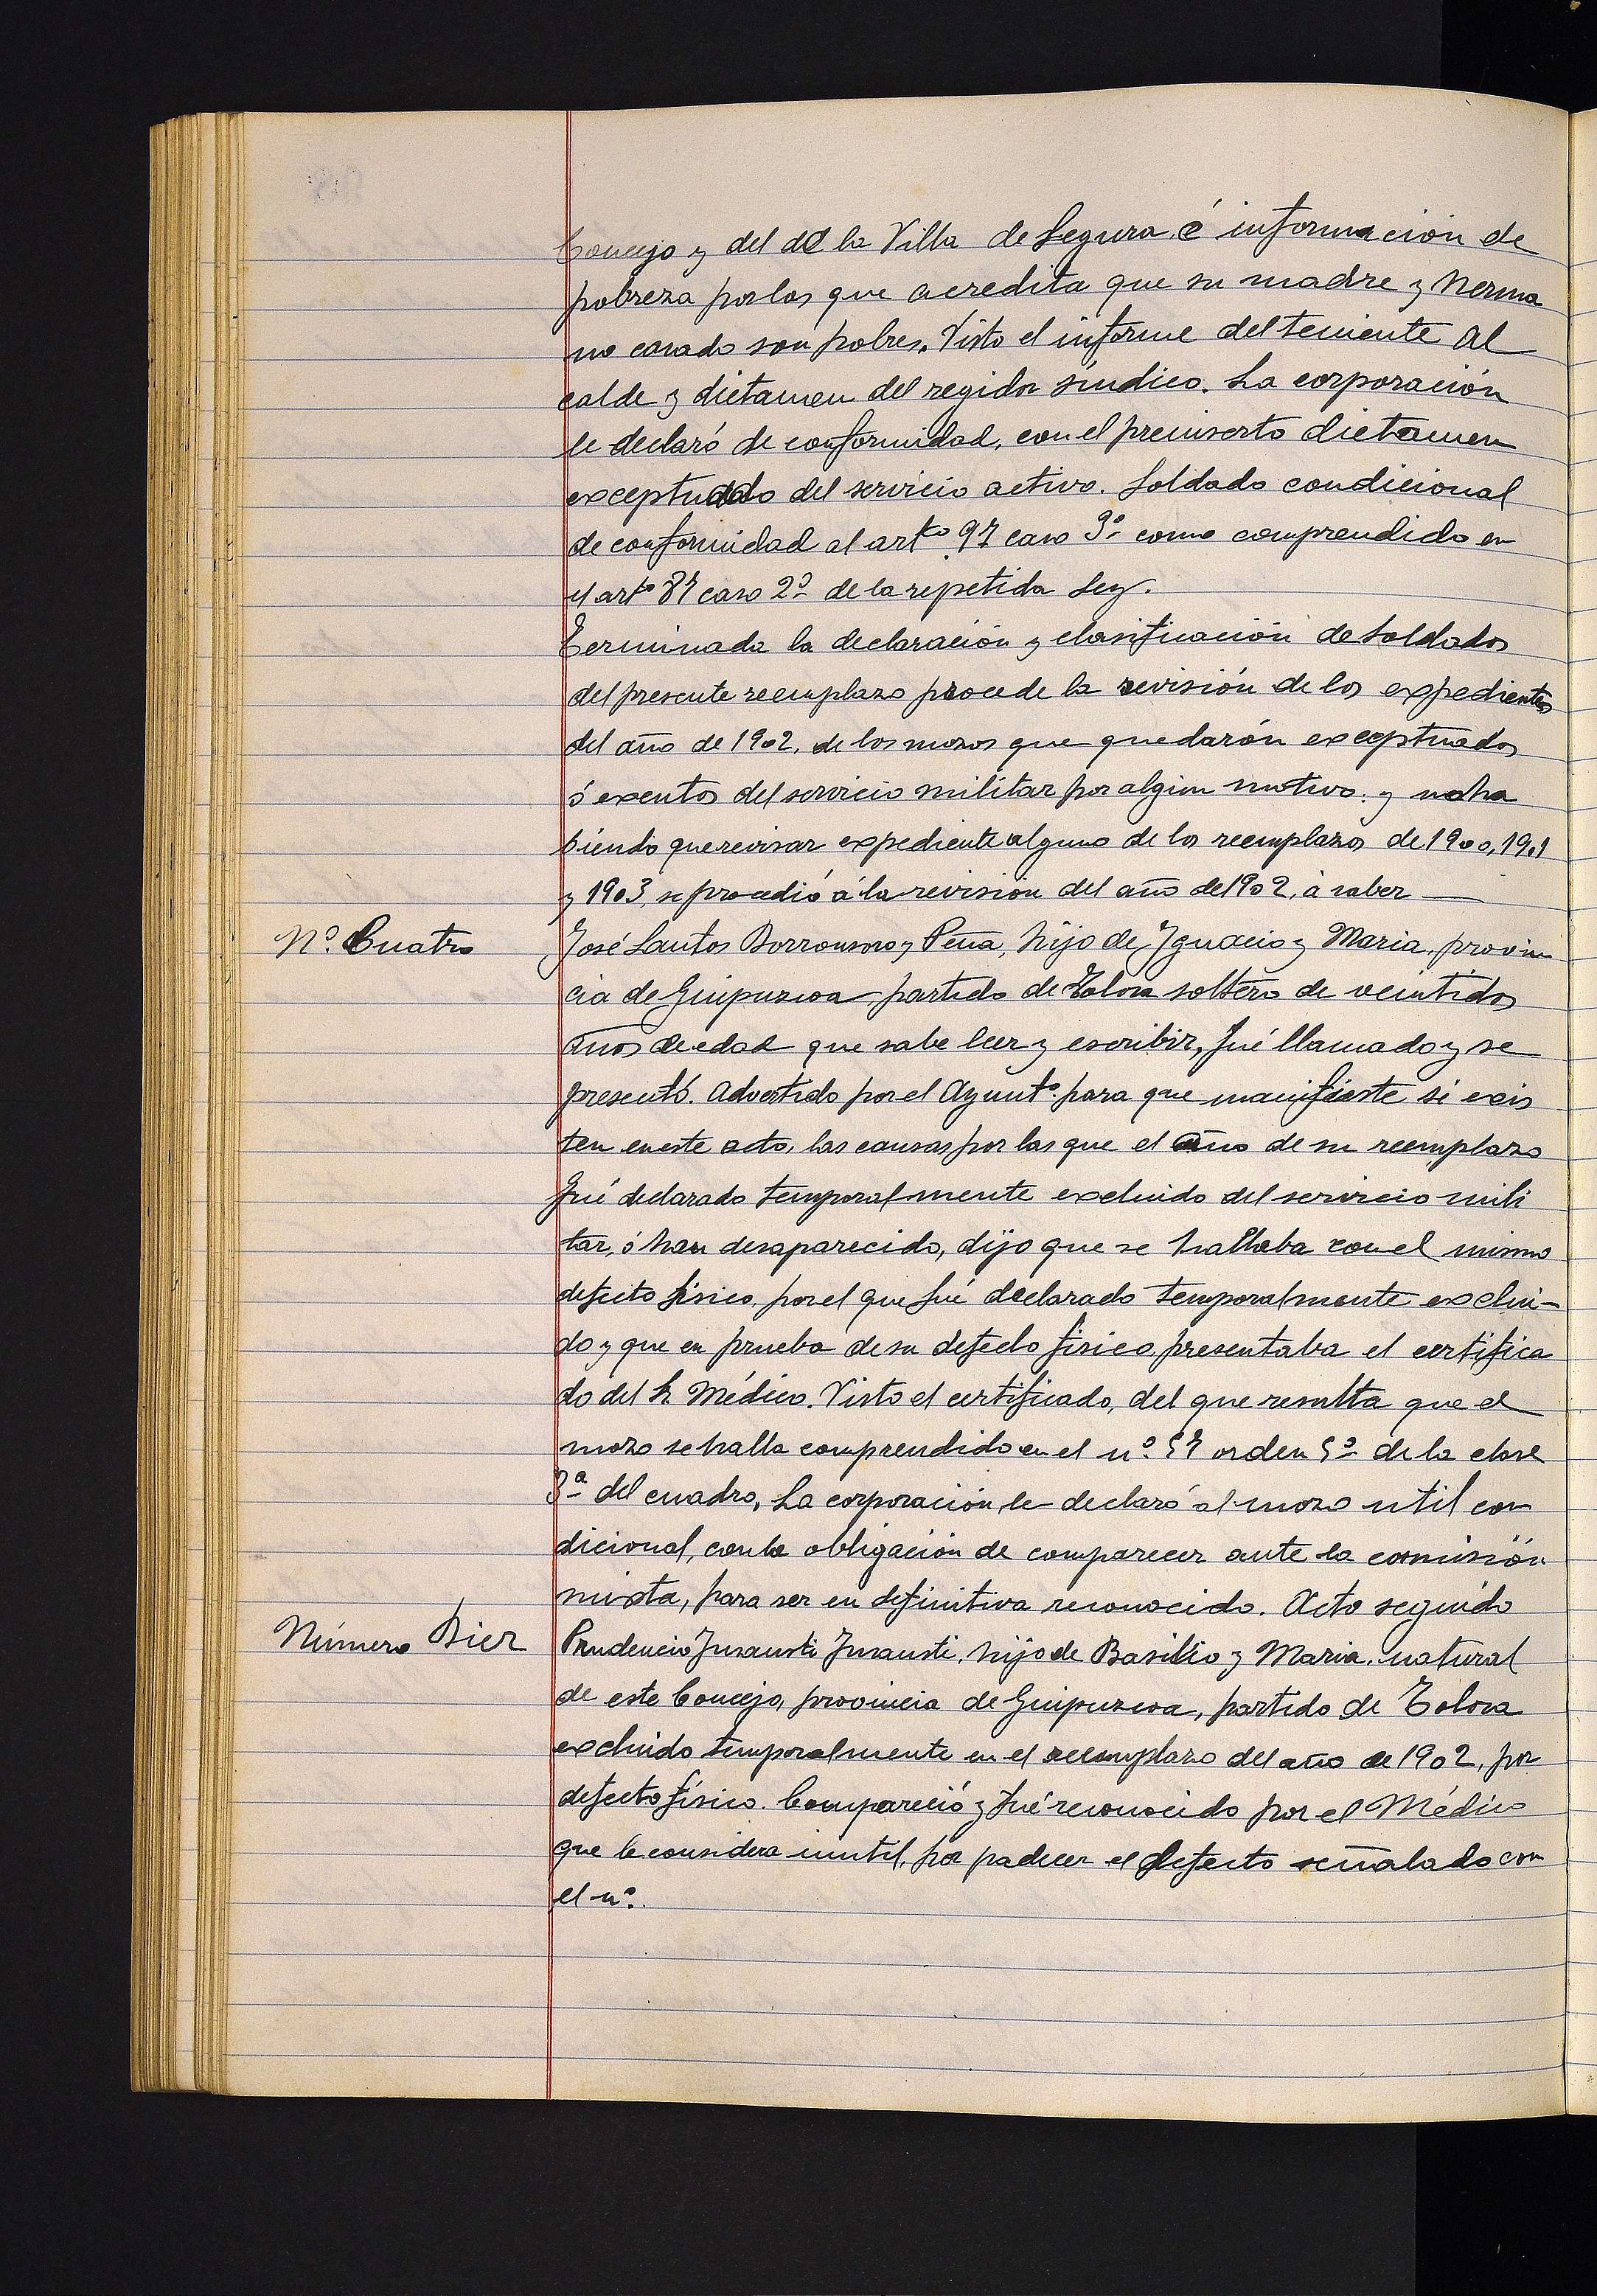 Concejo y del de la Villa de Segura, é información de
pobreza por los que acredita que su madre y herma
no casado son pobres. Visto el informe del teniente Al
calde y dictamen del regidor síndico. La corporación
le declaró de conformidad, con el preinserto dictamen
exceptuado del servicio activo. Soldado condicional
de conformidad al artº 97 caso 3º como comprendido en
el artº 87 caso 2º de la repetida Ley.
Terminada la declaración y clasificación de soldados
del presente reemplazo procede la revisión de los expedientes
del año de 1902, de los mozos que quedarón exceptuados
ó exentos del servicio militar por algun motivo: y no ha
biendo que revisar expediente alguno de los reemplazos de 1900, 1901
y 1903, se procedió á la revisión del año de 1902, á saber —
Nº Cuatro
José Santos Borronsoro y Peña, hijo de Ygnacio y Maria, provin
cia de Guipuzcoa partido de Tolosa soltero de veintidos
años de edad que sabe leer y escribir, fué llamado y se
presentó. Advertido por el Ayuntº para que manifieste si exis
ten en este acto, las causas por las que el año de su reemplazo
fué declarado temporalmente excluido del servicio mili
tar, ó han desaparecido, dijo que se hallaba con el mismo
defecto físico, por el que fué declarado temporalmente exclui-
do y que en prueba de su defecto físico presentaba el certifica
do del Sr Médico. Visto el certificado, del que resulta que el
mozo se halla comprendido en el nº 57 orden 5º de la clase
3ª del cuadro, La corporación le declaró al mozo util con
dicional, con la obligación de comparecer ante la comisión
mixta, para ser en definitiva reconocido. Acto seguido
Número Diez
Prudencio Jnsausti Jnsausti, hijo de Basilio y Maria, natural
de este Concejo, provincia de Guipuzcoa, partido de Tolosa
excluido temporalmente en el reemplazo del año de 1902, por
defecto físico. Compareció y fué reconocido por el Médico
que le considera inutil, por padecer el defecto señalado con
el nº.